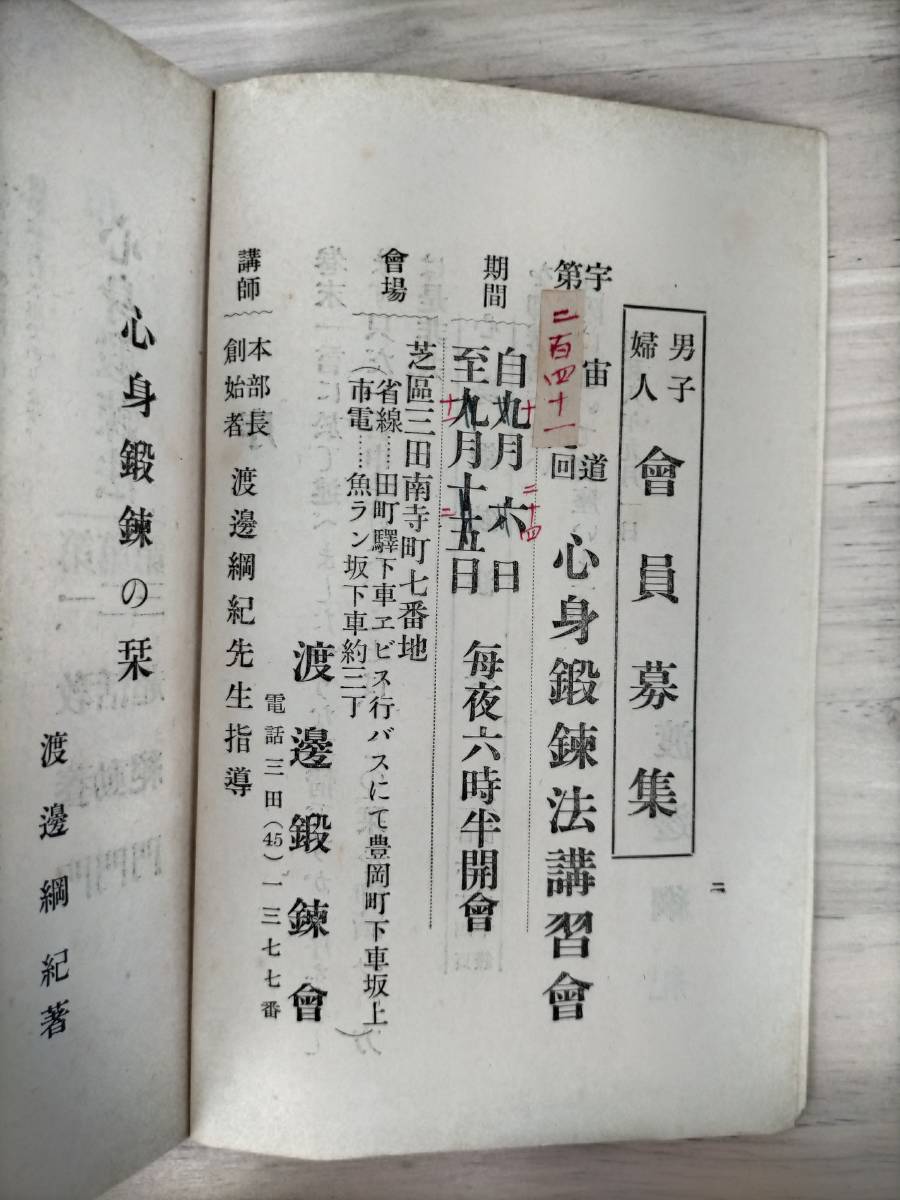 男子
婦人
會員募集
宇宙道
第二百四十一回
心身鍛鍊法講習會
期間
自九月六日
十 二十四
至九月十五日
十 二
每夜六時半開會
會場
芝區三田南寺町七番地
(省線……田町驛下車ヱビス行バスにて豊岡町下車坂上
市電……魚ラン坂下車約三丁)
渡邊鍛鍊會
電話三田(45)一三七七番
講師
本部長
創始者
渡邊綱紀先生指導
二
心身鍛鍊の栞
渡邊綱紀著